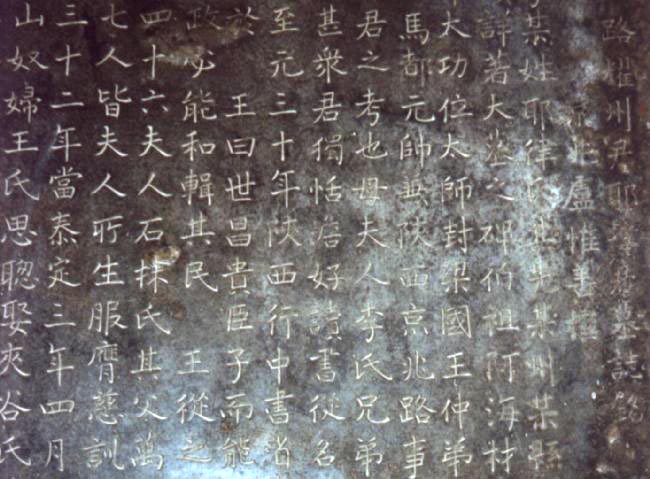 路耀州尹耶律墓誌銘
盧惟善撰
某姓耶律氏其先某州某縣
詳著大之碑伯祖阿海材
大功位太師封梁國王仲弟
馬都元帥兼陝西京兆路事
君之考也母夫人李氏兄弟
甚衆君獨恬好讀書從名
至元三十年陝西行中書省
於 王曰世昌貴臣子而能
政必能和輯其民 王從之
四十六夫人石抹氏其父萬
七人皆夫人所生服膺慈訓
三十二年當泰定三年四月
山奴婦王氏思聰娶夾谷氏